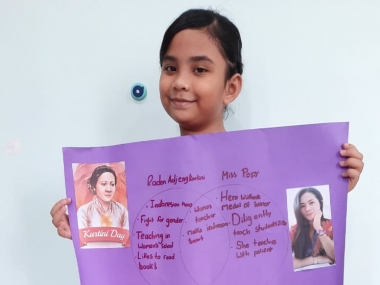 Raden Adjeng Kartini
Miss Posy
Kartini Day
• Indonesian
• Fight for gender
Teaching in
Women's
• Likes to read
books
• Women
teacher
• Hero without
medal of honor
• Diligently
teach students
• She teaches
with patient